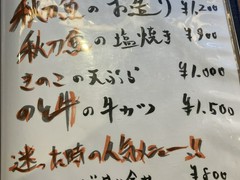 秋刀魚のお造り ¥1,200
秋刀魚の塩焼き ¥900
きのこの天ぷら ¥1.000
のと牛の牛カツ ¥1.500
迷った時の人気メニュー!!
¥800